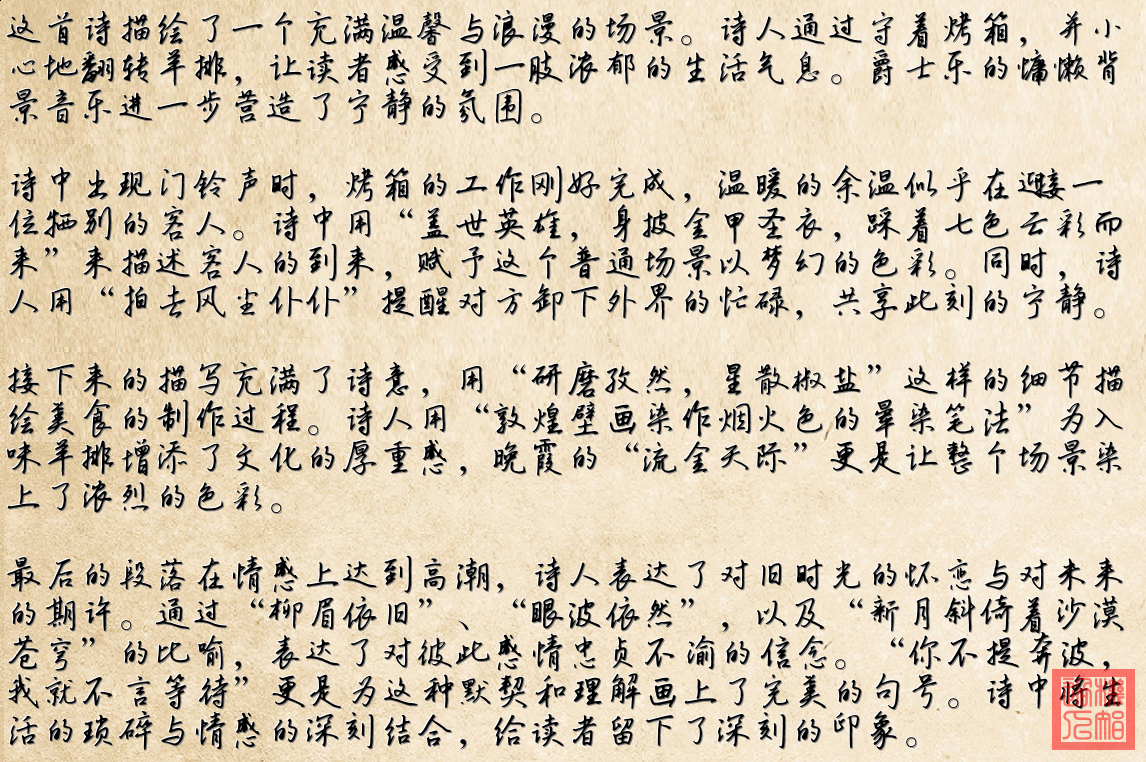 这首诗描绘了一个充满温馨与浪漫的场景。诗人通过守着烤箱，并小
心地翻转羊排，让读者感受到一股浓郁的生活气息。爵士乐的慵懒背
景音乐进一步营造了宁静的氛围。
诗中出现门铃声时，烤箱的工作刚好完成，温暖的余温似乎在迎接一
位特别的客人。诗中用“盖世英雄，身披金甲圣衣，踩着七色云彩而
来”来描述客人的到来，赋予这个普通场景以梦幻的色彩。同时，诗
人用“拍去风尘仆仆”提醒对方卸下外界的忙碌，共享此刻的宁静。
接下来的描写充满了诗意，用“研磨孜然，星散椒盐”这样的细节描
绘美食的制作过程。诗人用“敦煌壁画染作烟火色的晕染笔法”为入
味羊排增添了文化的厚重感，晚霞的“流金天际”更是让整个场景染
上了浓烈的色彩。
最后的段落在情感上达到高潮，诗人表达了对旧时光的怀恋与对未来
的期许。通过“柳眉依旧”、“眼波依然”，以及“新月斜倚着沙漠
苍穹”的比喻，表达了对彼此感情忠贞不渝的信念。“你不提奔波，
我就不言等待”更是为这种默契和理解画上了完美的句号。诗中将生
活的琐碎与情感的深刻结合，给读者留下了深刻的印象。